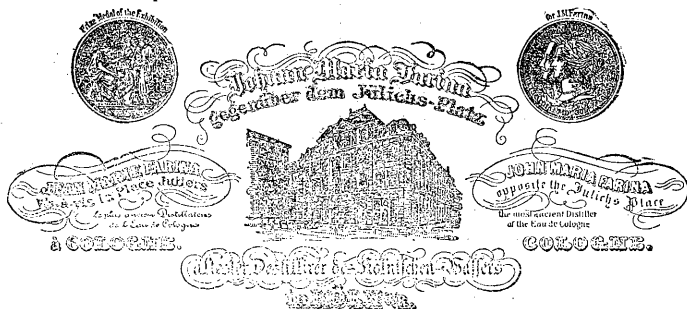 Prize Medal of the Exhibition
for J.M Farina
Johann Maria Farina
gegenüber dem Jülichs-Platz
JEAN MARIE FARINA
Vis-à-vis la Place Juliers
Le plus ancien Distillateur
de l'Eau de Cologne
à COLOGNE.
JOHN MARIA FARINA
opposite the Julichs Place
the most ancient Distiller
of the Eau de Cologne
COLOGNE.
ältester Destillirer des Kölnischen-Wassers
in KÖLN